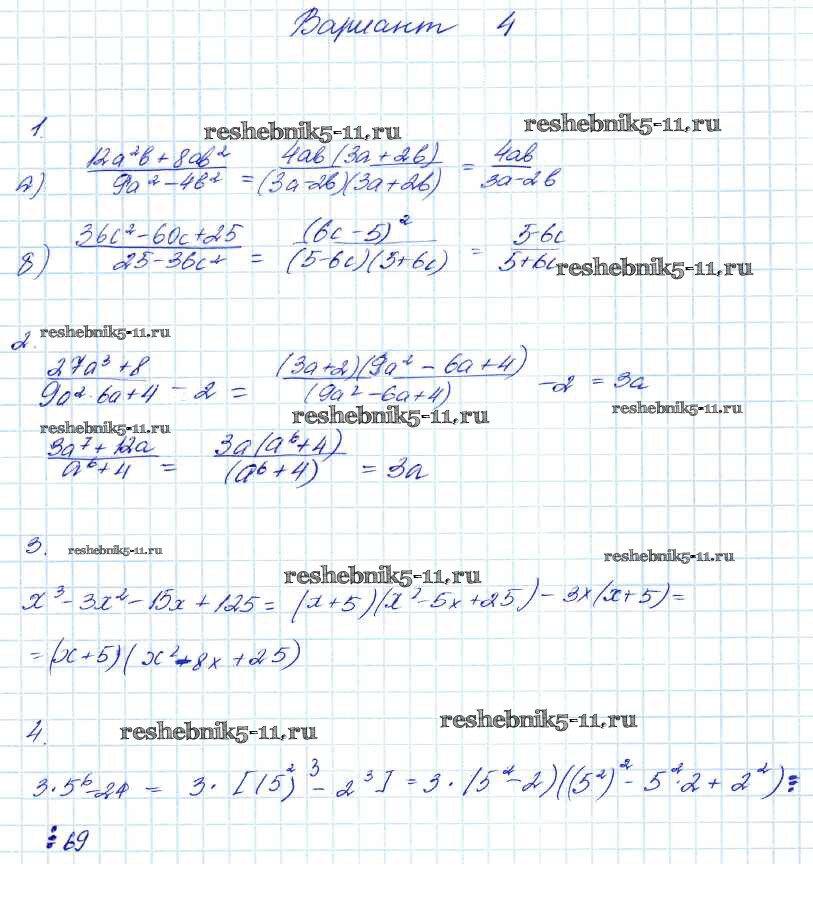 Вариант 4
1.
reshebnik5-11.ru reshebnik5-11.ru
а) (12a²b + 8ab²)/(9a² - 4b²) = (4ab(3a + 2b))/((3a-2b)(3a+2b)) = 4ab/(3a-2b)
б) (36c² - 60c + 25)/(25 - 36c²) = (6c - 5)²/((5-6c)(5+6c)) = (5-6c)/(5+6c)
reshebnik5-11.ru
2. reshebnik5-11.ru
(27a³ + 8)/(9a² - 6a + 4) - 2 = ((3a+2)(9a² - 6a + 4))/(9a² - 6a + 4) - 2 = 3a
reshebnik5-11.ru reshebnik5-11.ru
reshebnik5-11.ru
(3a⁷ + 12a)/(a⁶ + 4) = (3a(a⁶ + 4))/(a⁶ + 4) = 3a
3. reshebnik5-11.ru reshebnik5-11.ru
reshebnik5-11.ru
x³ - 3x² - 15x + 125 = (x + 5)(x² - 5x + 25) - 3x(x + 5) =
= (x + 5)(x² - 8x + 25)
4. reshebnik5-11.ru reshebnik5-11.ru
3·5⁶ - 24 = 3·[(5²)³ - 2³] = 3·(5² - 2)((5²)² - 5²·2 + 2²) ⋮
⋮ 69